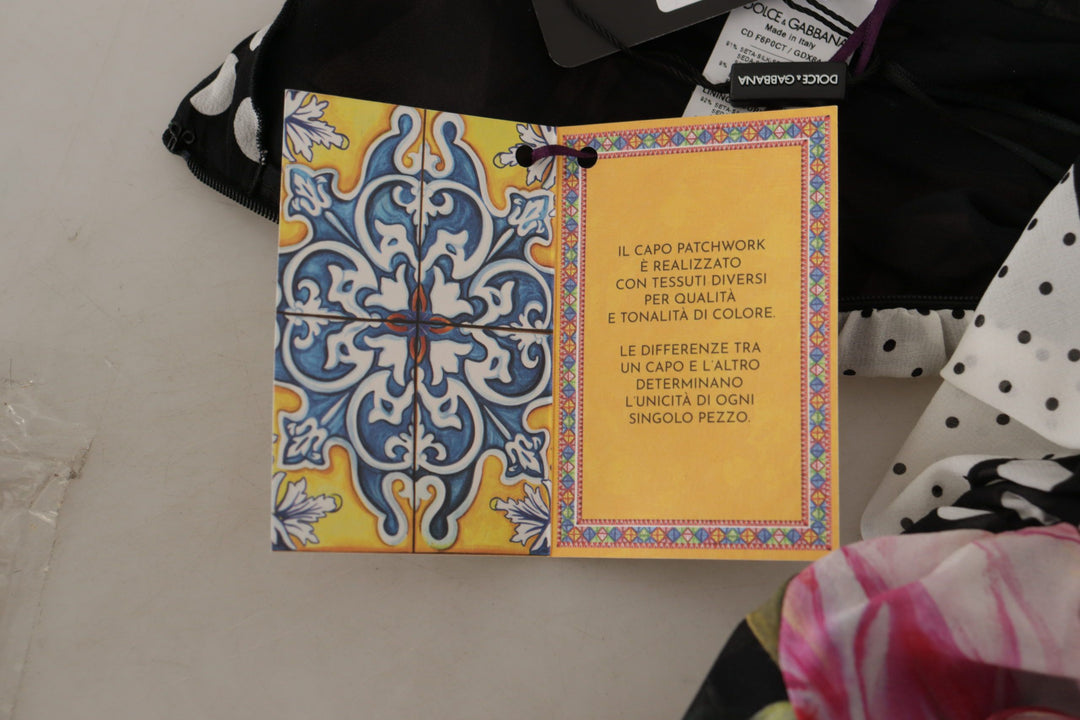 DOLCE & GABBANA
Made in Italy
CD F6P0CT /
DOLCE & GABBANA
IL CAPO PATCHWORK
È REALIZZATO
CON TESSUTI DIVERSI
PER QUALITÀ
E TONALITÀ DI COLORE.
LE DIFFERENZE TRA
UN CAPO E L'ALTRO
DETERMINANO
L'UNICITÀ DI OGNI
SINGOLO PEZZO.